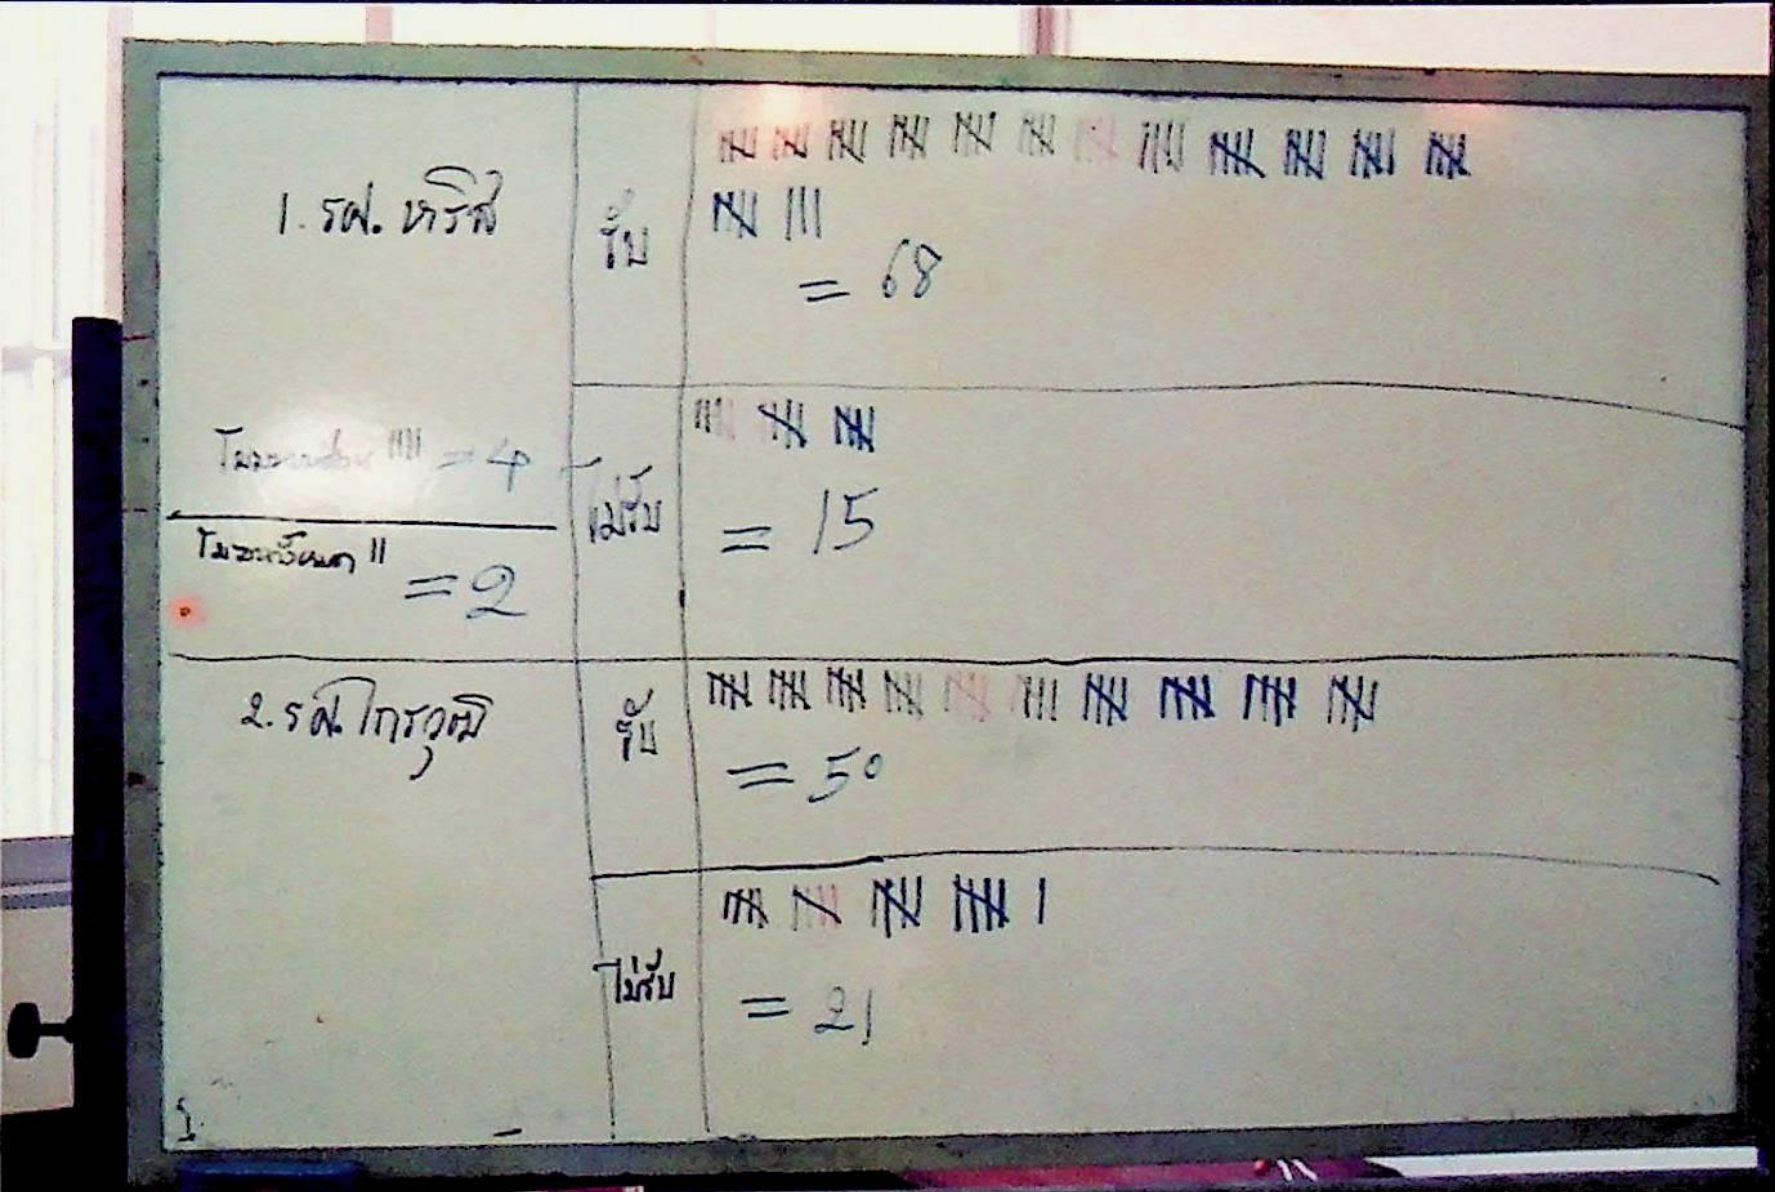 1. รศ. หริส
รับ
= 68
= 4
ไม่รับ
= 15
= 2
2. รศ. ไกรวุฒิ
รับ
= 50
ไม่รับ
= 21